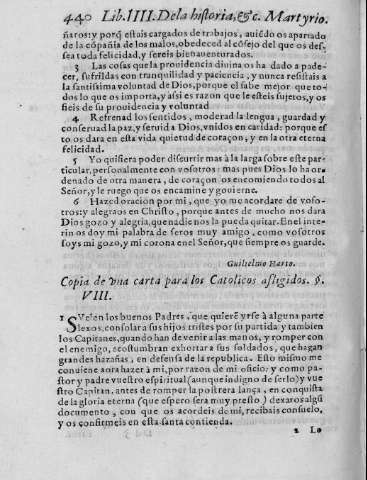 440 Lib.IIII.Dela historia,&c. Martyrio.
ñaros: y porq̃ estais cargados de trabajos, auiẽdo os apartado
de la cõpañia de los malos, obedeced al cõsejo del que os des-
sea toda felicidad, y sereis bienauenturados.
3 Las cosas que la prouidencia diuina os ha dado a pade-
cer, sufrildas con tranquilidad y paciencia, y nunca resistais a
la santissima voluntad de Dios, porque el sabe mejor que to-
dos lo que os importa, y assi es razon que le esteis sujetos, y os
fieis de su prouidencia y voluntad
4 Refrenad los sentidos, moderad la lengua, guardad y
conseruad la paz, y seruid a Dios, vnidos en caridad: porque es
to os dara en esta vida quietud de coraçon, y en la otra eterna
felicidad.
5 Yo quisiera poder discurrir mas à la larga sobre este par-
ticular, personalmente con vosotros: mas pues Dios lo ha or-
denado de otra manera, de coraçon os encomiendo todos al
Señor, y le ruego que os encamine y gouierne.
6 Hazed oracion por mi, que yo me acordare de voso-
tros: y alegraos en Christo, porque antes de mucho nos dara
Dios gozo y alegria, que nadie nos la pueda quitar. En el inte-
rin os doy mi palabra de seros muy amigo, como vosotros
soys mi gozo, y mi corona en el Señor, que siempre os guarde.
Guilielmo Harto.
Copia de vna carta para los Catolicos afligidos. §.
VIII.
1 SVelen los buenos Padres, que quierẽ yrse à alguna parte
lexos, consolar a sus hijos tristes por su partida y tambien
los Capitanes, quando han de venir a las manos, y romper con
el enemigo, acostumbran exhortar a sus soldados, que hagan
grandes hazañas, en defensa de la republica. Esto mismo me
conuiene aora hazer à mi, por razon de mi oficio: y como pas-
tor y padre vuestro espiritual (aunque indigno de serlo) y vues
tro Capitan, antes de romper la postrera lança, en conquista
de la gloria eterna (que espero sera muy presto) dexaros algũ
documento, con que os acordeis de mi, recibais consuelo,
y os confirmeis en esta santa contienda.
2 Lo